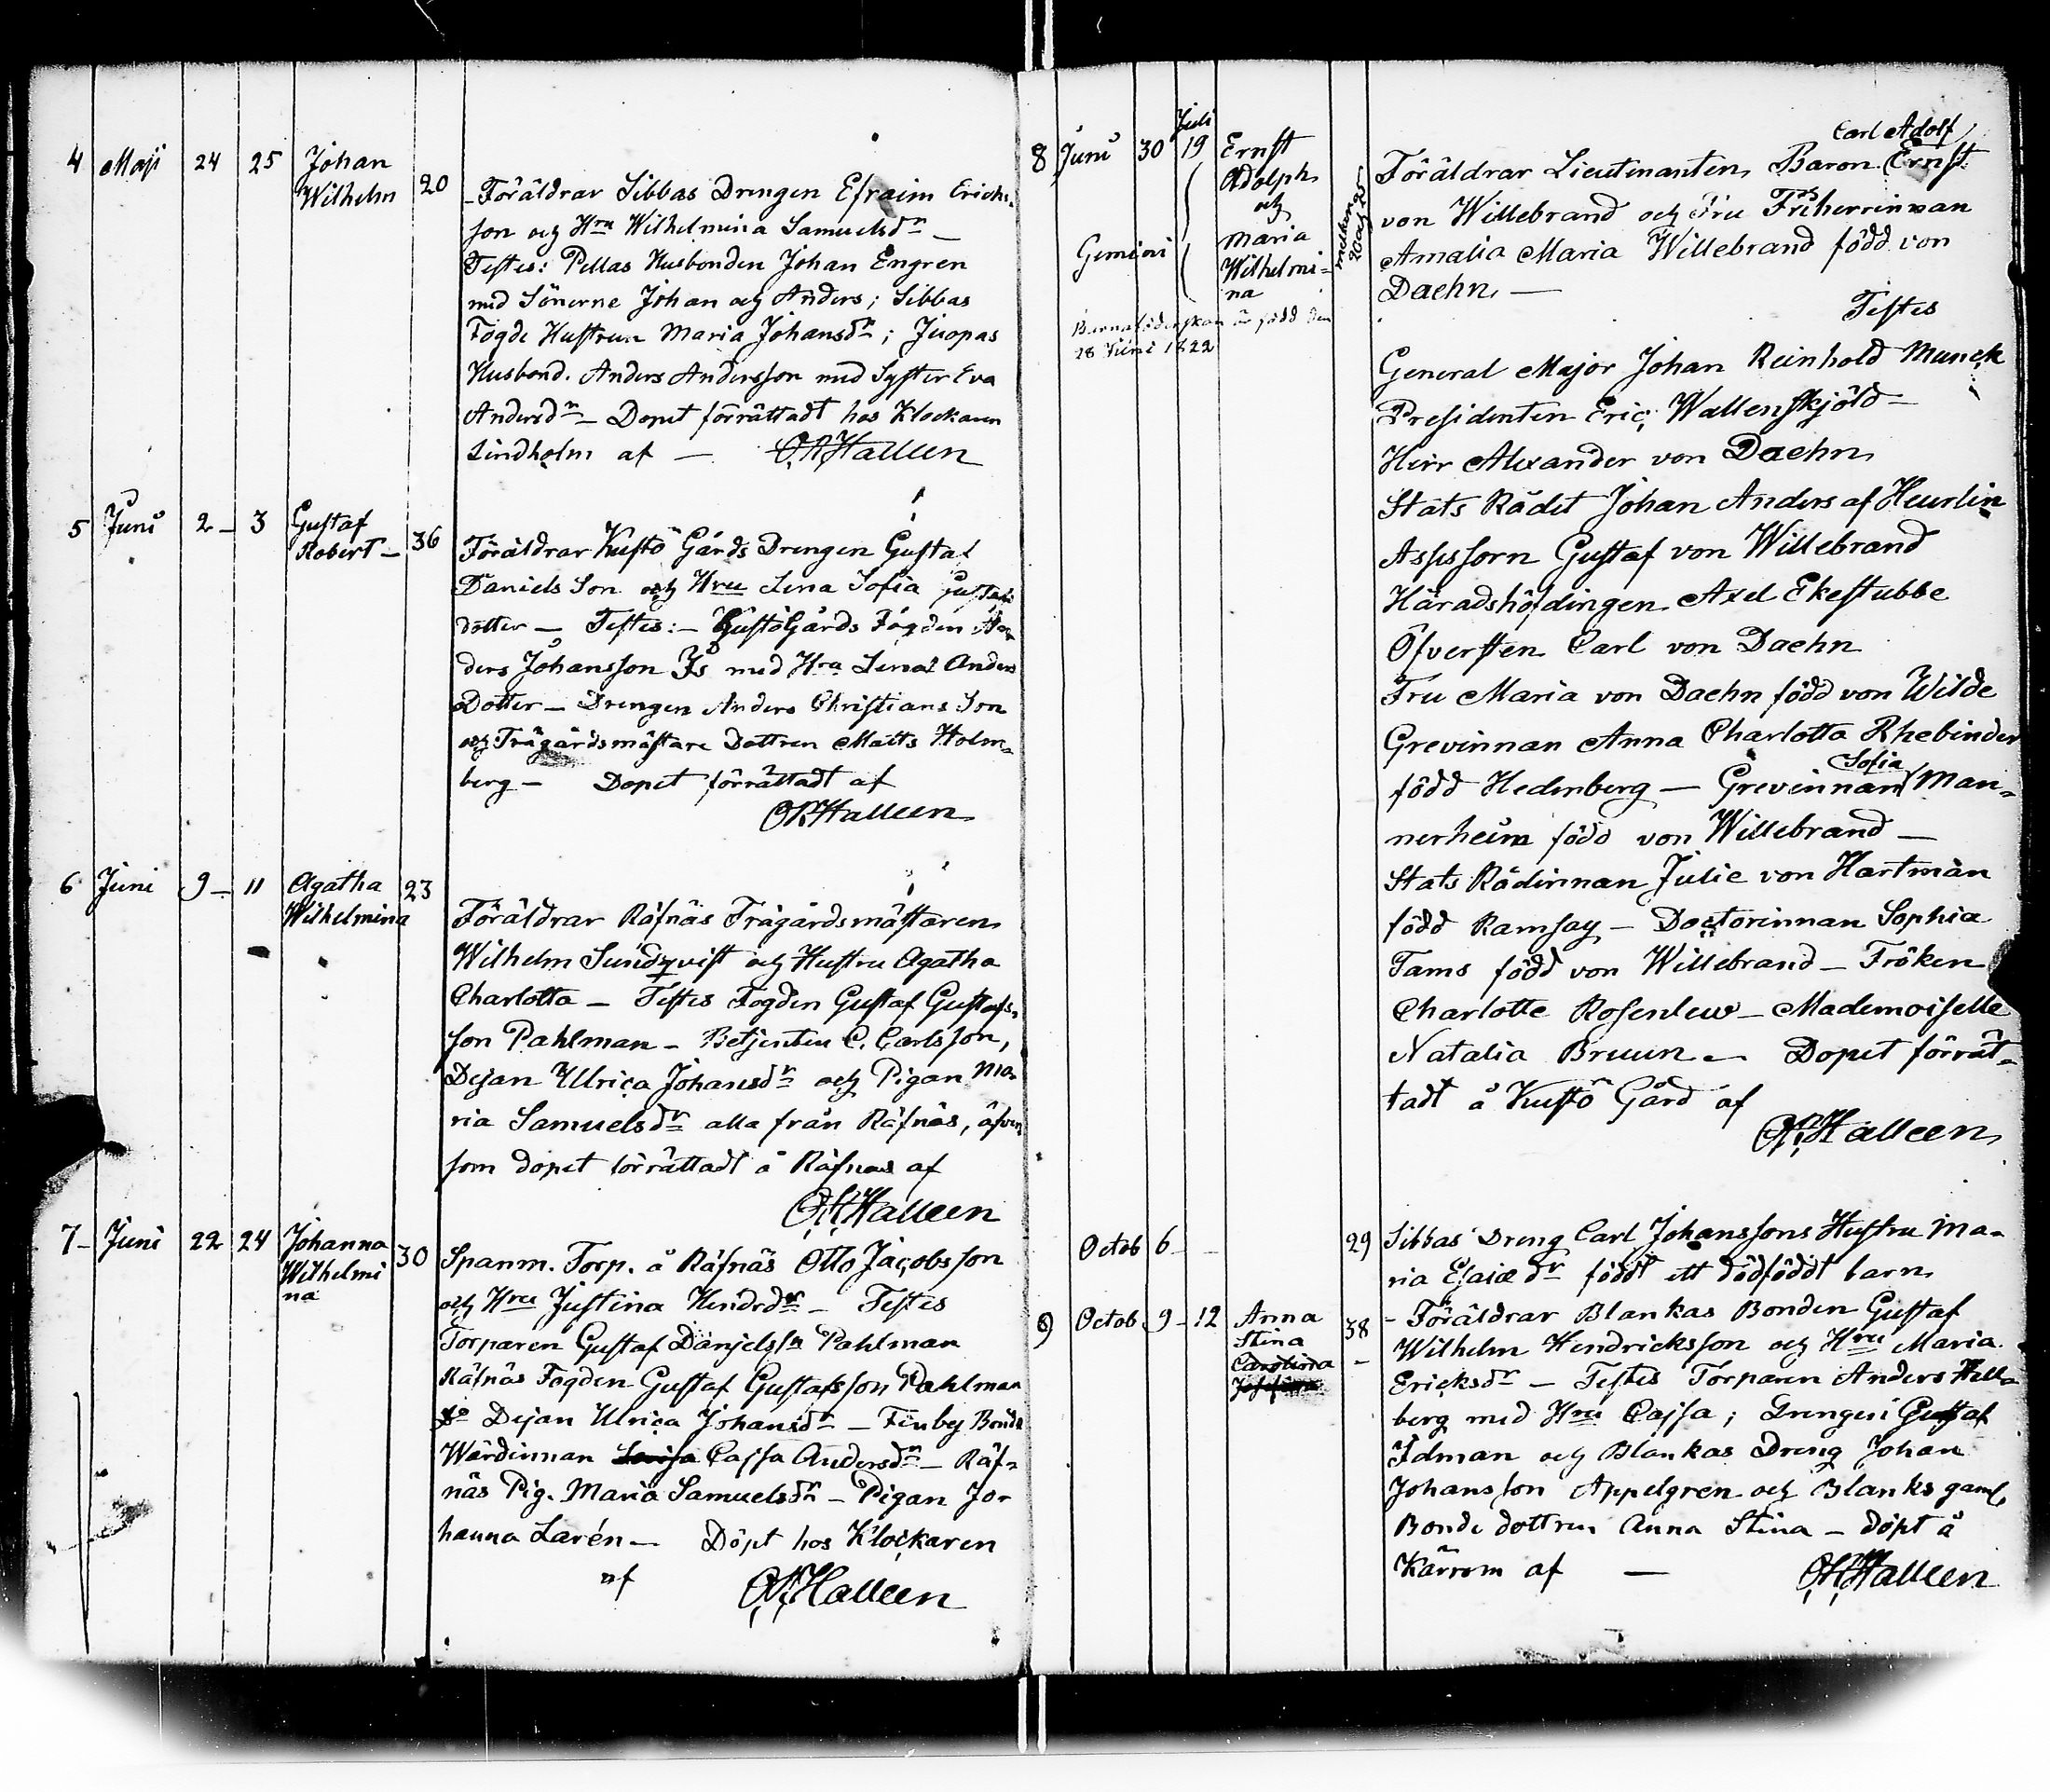 4 Maji 24 25 Johan Wilhelm 20
Föräldrar Sibbas Drengen Efraim Erics-
son och Hru Wilhelmina Samuelsdr —
Testes: Pellas Husbonden Johan Engren
med Sönerne Johan och Anders; Sibbas
Fogde Hustrun Maria Johansdr; Juopas
Husbond. Anders Andersson med Syster Eva
Andersdr — Dopet förrättadt hos Klockaren
Lindholm af — Halleen
5 Juni 2 — 3 Gustaf Robert — 36
Föräldrar Kustö Gårds Drengen Gustaf
Daniels Son och Hru Lena Sofia Gustafs
dotter — Testes: — Gustö Gårds Fogden An-
ders Johansson Is med Hru Lena Anders
Dotter — Drengen Anders Christians Son
och Trägårdsmästare Dottren Matts Holm-
berg — Dopet förrättadt af
Halleen
6 Juni 9 — 11 Agatha Wilhelmina 23
Föräldrar Räfnäs Trägårdsmästaren
Wilhelm Sundqvist och Hustru Agatha
Charlotta — Testes Fogden Gustaf Gustafs-
son Pahlman — Betjenten C. Carlsson,
Dejan Ulrica Johansdr och Pigan Ma-
ria Samuelsdr alla från Räfnäs, äfven
som dopet förrättadt å Räfnäs af
Halleen
7 — Juni 22 24 Johanna Wilhelmi na 30
Spanm. Torp. å Räfnäs Otto Jacobsson
och Hru Justina Hendrdr — Testes
Torparen Gustaf Danjelssn Pahlman
Räfnäs Fogden Gustaf Gustafsson Pahlman
Do Dejan Ulrica Johansdr — Finby Bonde
Wärdinnan Lovisa Cajsa Andersdr — Räf-
näs Pig. Maria Samuelsdr — Pigan Jo-
hanna Larén — Döpt hos Klockaren
af Halleen
8 Juni 30 Juli 19 Ernst
Adolph
och
Maria
Wilhelmi-
na
Gemini
mellan 20 och 25
Barnaföderskan är född den
28 Juni 1822
Carl Adolf
Föräldrar Lieutenanten Baron Ernst
von Willebrand och Fru Friherrinnan
Amalia Maria Willebrand född von
Daehn. —
Testes
General Major Johan Reinhold Munck
Presidenten Eric Wallenskjöld —
Herr Alexander von Daehn
Stats Rådet Johan Anders af Heurlin
Assessorn Gustaf von Willebrand
Häradshöfdingen Axel Ekestubbe
Öfversten Carl von Daehn
Fru Maria von Daehn född von Wilde
Grevinnan Anna Charlotta Rhebinder
född Hedenberg — Grevinnan Sofia Man-
nerheim född von Willebrand —
Stats Rådinnan Julie von Hartman
född Ramsay — Doctorinnan Sophia
Tams född von Willebrand — Fröken
Charlotte Rosenlew — Mademoiselle
Natalia Bruun. — Dopet förrät-
tadt å Kustö Gård af
Halleen
Octob 6 — 29 Sibbas Dreng Carl Johanssons Hustru Ma-
ria Esaiædr födt ett dödföddt barn
9 Octob 9 — 12 Anna
Stina
Carolina
Josefina
38
- Föräldrar Blankas Bonden Gustaf
Wilhelm Hendricksson och Hru Maria
Ericksdr — Testes Torparen Anders Hell-
berg med Hru Cajsa; Drengen Gustaf
Idman och Blankas Dreng Johan
Johansson Appelgren och Blanks gaml.
Bonde dottren Anna Stina — döpt å
Kärrom af — Halleen